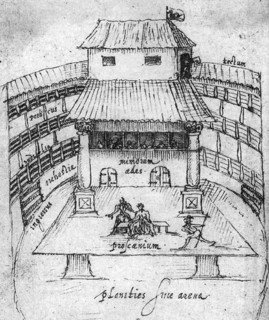 tectum
porticus
orchestra
ingressus
mimorum
ædes
proscænium
planities sive arena